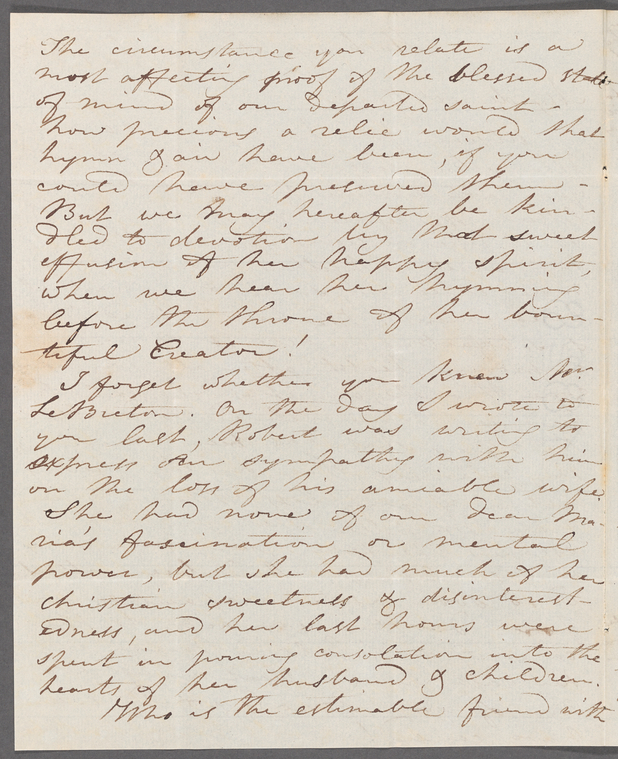 The circumstance you relate is a
most affecting proof of the blessed state
of mind of our departed saint -
how precious a relic would that
hymn & air have been, if you
could have preserved them -
But we may hereafter be kin-
dled to devotion by that sweet
effusion of her happy spirit,
when we hear her hymning
before the throne of her boun-
tiful Creator!
I forget whether you knew Mr.
LeBreton. On the day I wrote to
you last, Robert was writing to
express our sympathy with him
on the loss of his amiable wife
She had none of our dear Ma-
ria's fascination or mental
power, but she had much of her
christian sweetness & disinterest-
edness, and her last hours were
spent in pouring consolation into the
hearts of her husband & children.
Who is the estimable friend with